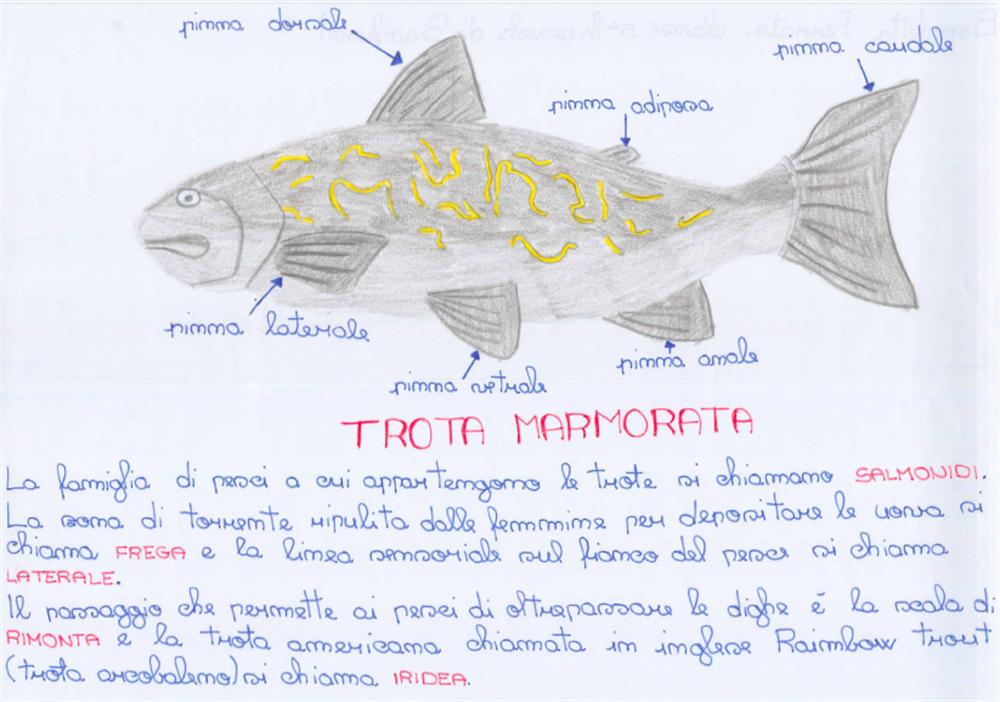 pinna dorsale
pinna caudale
pinna adiposa
pinna laterale
pinna anale
pinna vetrale
TROTA MARMORATA
La famiglia di pesci a cui appartengono le trote si chiamano SALMONIDI.
La zona di torrente ripulita dalle femmine per depositare le uova si
chiama FREGA e la linea sensoriale sul fianco del pesce si chiama
LATERALE.
Il passaggio che permette ai pesci di oltrepassare le dighe é la scala di
RIMONTA e la trota americana chiamata in inglese Rainbow trout
(trota arcobaleno) si chiama IRIDEA.